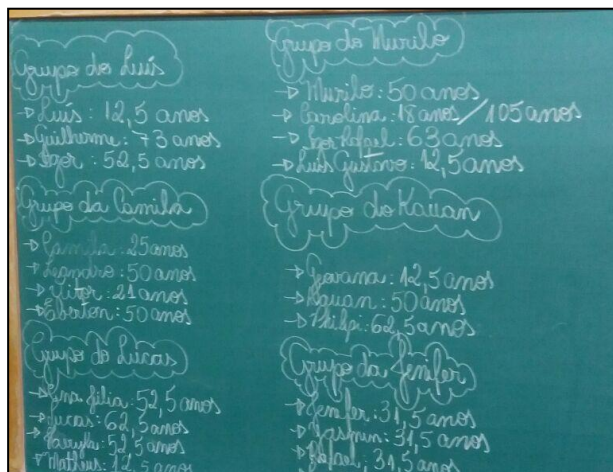 Grupo do Luis
→ Luis: 12,5 anos
→ Guilherme: 73 anos
→ Igor: 52,5 anos
Grupo da Camila
→ Camila: 25 anos
→ Leandro: 50 anos
→ Vitor: 21 anos
→ Eberton: 50 anos
Grupo do Lucas
→ Ana Júlia: 52,5 anos
→ Lucas: 62,5 anos
→ 52,5 anos
→ Mattheus: 12,5 anos
Grupo do Murilo
→ Murilo: 50 anos
→ Carolina: 18 anos / 105 anos
→ Igor Rafael: 63 anos
→ Luis Gustavo: 12,5 anos
Grupo do Kauan
→ Geovana: 12,5 anos
→ Kauan: 50 anos
→ 62,5 anos
Grupo da Jenifer
→ Jenifer: 31,5 anos
→ Yasmin: 31,5 anos
→ Rafael: 31,5 anos